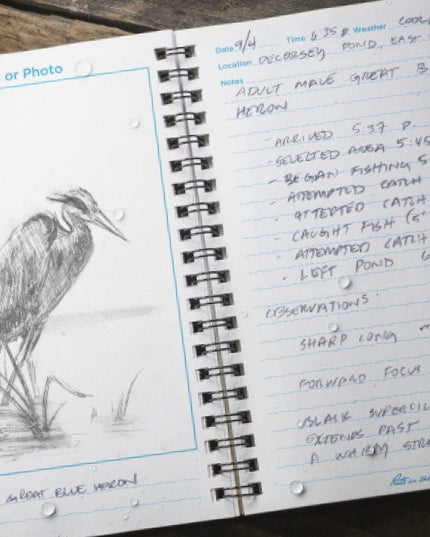 or Photo
GREAT BLUE HERON
Date 9/4 Time 6:35 P Weather COOL
Location DECORSEY POND, EAST
Notes
ADULT MALE GREAT B
HERON
- ARRIVED 5:37 P
- SELECTED AREA 5:45
- BEGAN FISHING 5
- ATTEMPTED CATCH
- ATTEPTED CATCH
- CAUGHT FISH (5"
- ATTEMPTED CATCH
- LEFT POND 6
OBSERVATIONS:
SHARP LONG
FORWARD FOCUS
BLACK SUPERCIL
EXTENDS PAST
A WHISPY STR
Rite in the